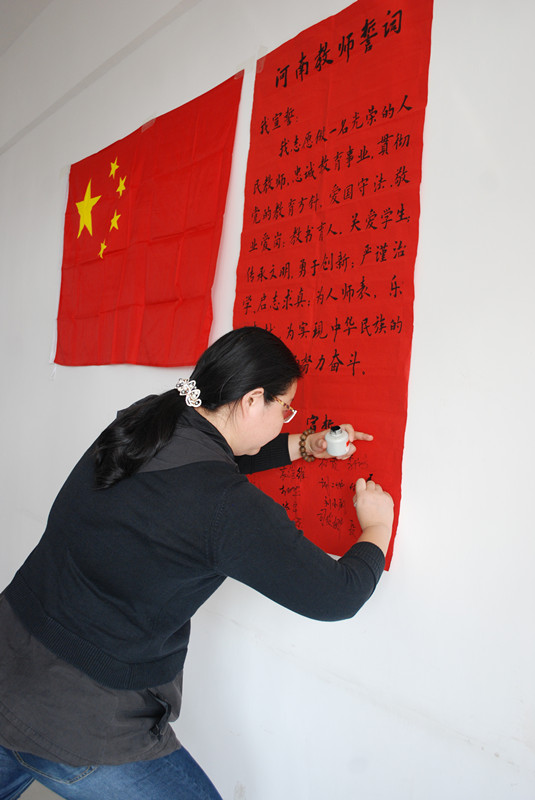 河南教师誓词
我宣誓:
我志愿做一名光荣的人
民教师。忠诚教育事业,贯彻
党的教育方针,爱国守法,敬
业爱岗;教书育人,关爱学生;
传承文明,勇于创新;严谨治
学,启志求真;为人师表,乐
为实现中华民族的
努力奋斗。
宣誓